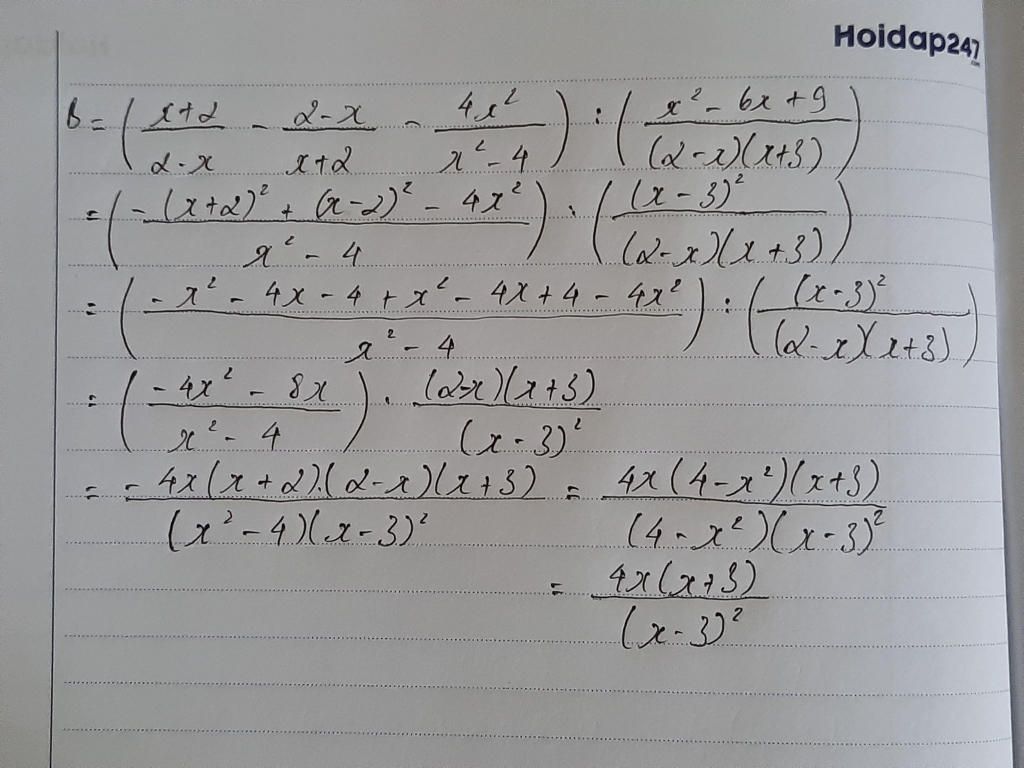 Hoidap247.com
B = ( (x+2)/(2-x) - (2-x)/(x+2) - 4x²/(x²-4) ) : ( (x²-6x+9)/((2-x)(x+3)) )
= ( (-(x+2)² + (x-2)² - 4x²)/(x²-4) ) : ( (x-3)²/((2-x)(x+3)) )
= ( (-x²-4x-4+x²-4x+4-4x²)/(x²-4) ) : ( (x-3)²/((2-x)(x+3)) )
= ( (-4x²-8x)/(x²-4) ) . ((2-x)(x+3))/(x-3)²
= (-4x(x+2).(2-x)(x+3))/((x²-4)(x-3)²) = (4x(4-x²)(x+3))/((4-x²)(x-3)²)
= (4x(x+3))/(x-3)²